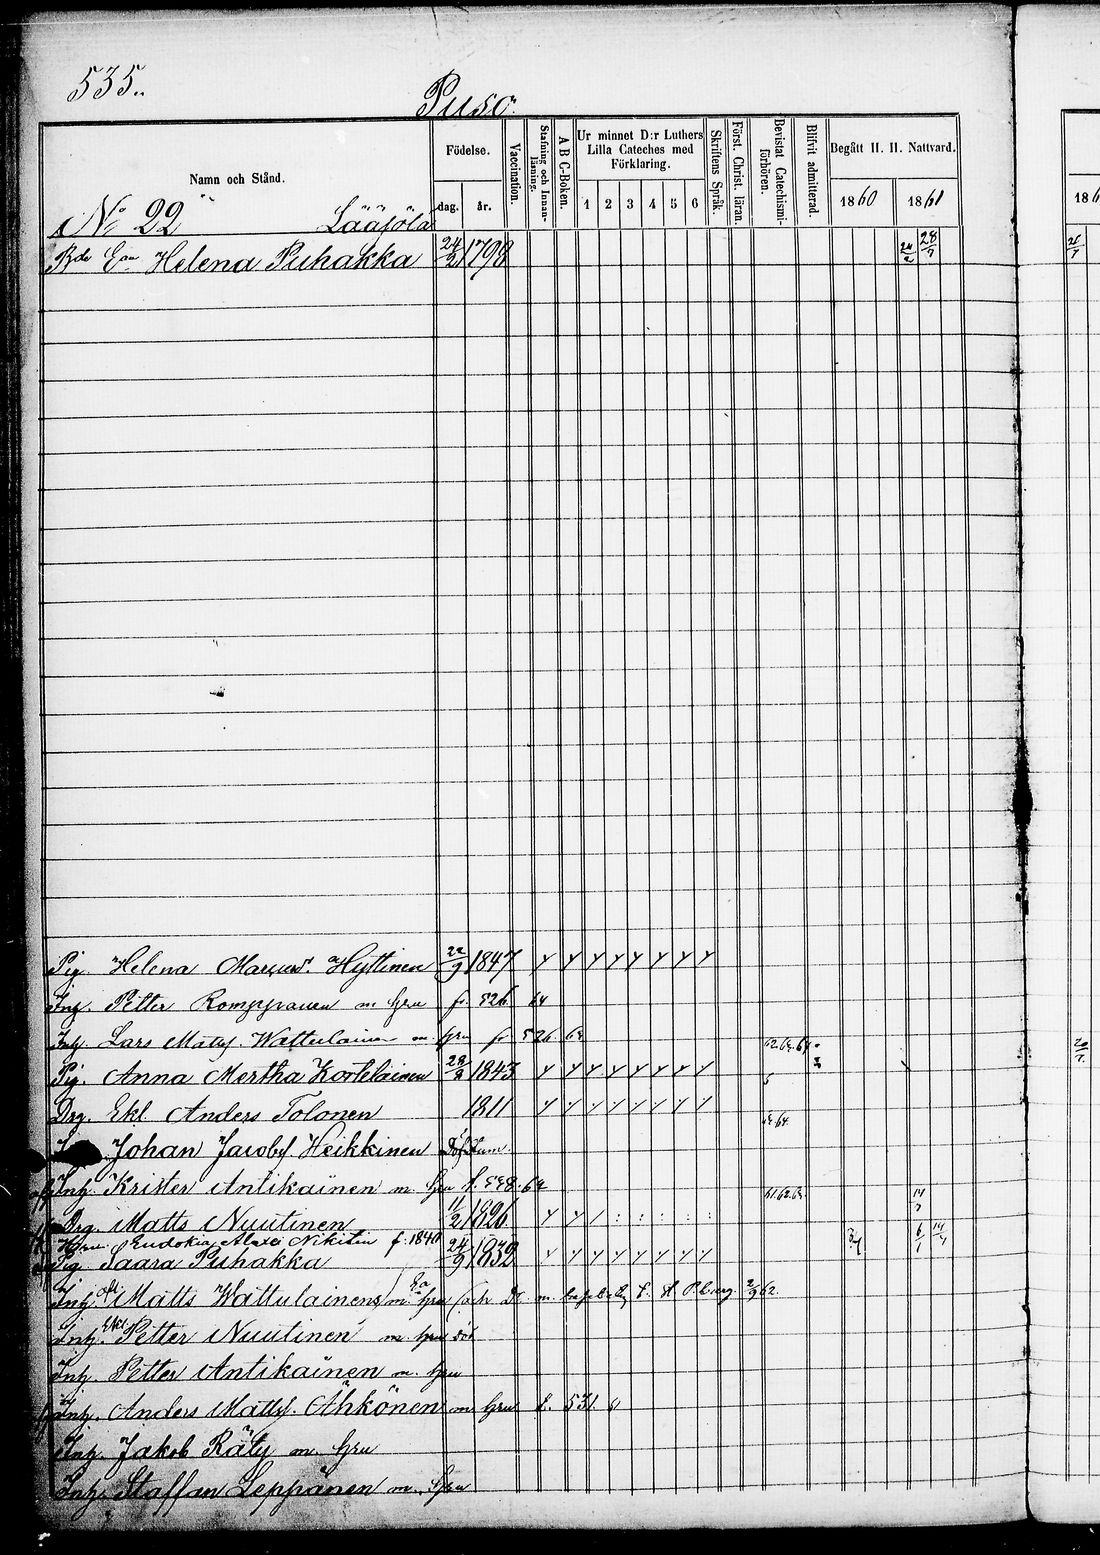 535.
Puso.
Namn och Stånd.
Födelse.
dag.
år.
Vaccination.
Stafning och Innanläsning.
A B C-Boken.
Ur minnet D:r Luthers Lilla Cateches med Förklaring.
1 2 3 4 5 6
Skriftens Språk.
Först. Christ. läran.
Bevistat Catechismiförhören.
Blifvit admitterad.
Begått H. H. Nattvard.
1860
1861
186
No 22 Lääjölä
Helena Puhakka 24/2 1798 24/2 28/7
Pig. Helena Marcusd. Hyttinen 22/9 1847
Inh. Petter Romppanen m. hru fr. 526. 64
Inh. Lars Matss. Wattulainen m hru fr 526. 62.63.64.
Pig. Anna Mertha Kortelainen 28/8 1843 5
Drg. Ekl Anders Tolonen 1811 64
Johan Jacobss. Heikkinen
Inh. Krister Antikainen m. hru 61.62.63.
Drg. Matts Nuutinen 11/2 1826
Hru Eudokia Alexei Nikitin f. 1840
Pig. Saara Puhakka 24/9 1832
Inh. Matts Wattulainen m hru 62.
Inh. Petter Nuutinen m. hru död
Inh. Petter Antikainen m. hru
Inh. Anders Matts. Ähkönen m hru 531
Inh. Jakob Räty m. hru
Inh. Staffan Leppänen m. hru